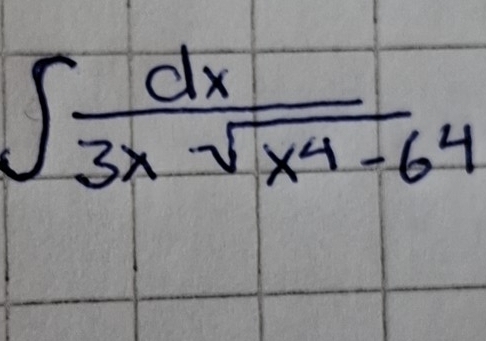 ∫ dx / 3x √x⁴ - 6⁴